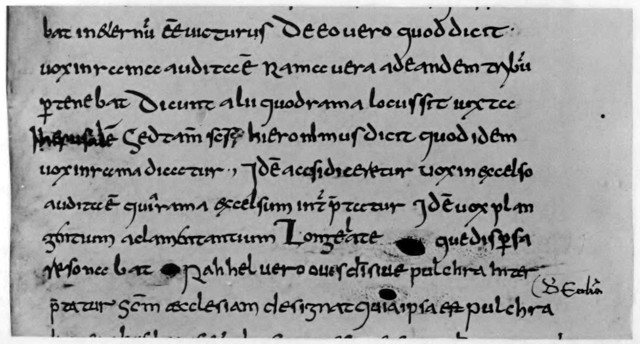 bat in eternū eē victurus De eo vero quod dicit
vox in rama audita ē Rama vera ad eandem tribū
p̄tenebat Dicunt alii quod rama locus sit iuxta
hierusalē Sed tam̄ scs̄ hieronimus dicit quod idem
vox in rama dicetur, Idē acsi diceretur vox in excelso
audita ē quia rama excelsum int̄p̄tetur Idē vox plan
gentium ac lamentantium Longe late que dispersa
resonabat Rahhel vero ovis sive pulchra inter
p̄tatur Scm̄ aecclesiam designat quia ipsa est pulchra